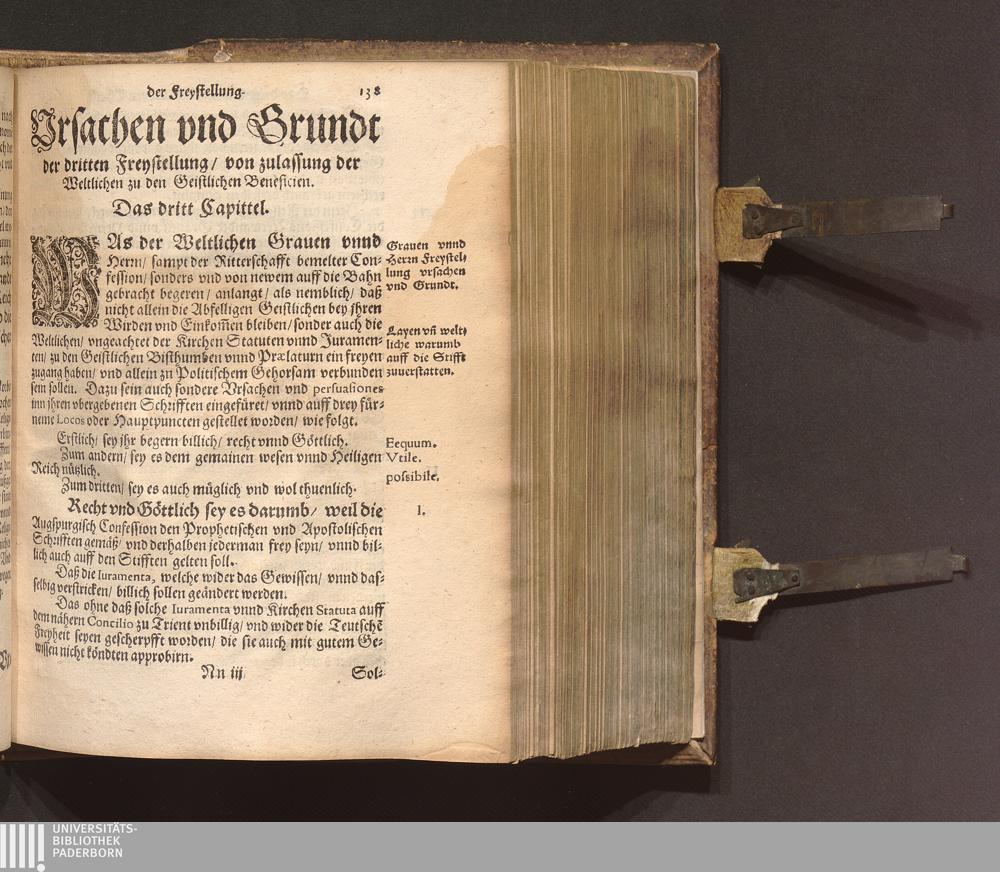 der Freystellung. 138
Vrsachen vnd Grundt
der dritten Freystellung/ von zulassung der
Weltlichen zu den Geistlichen Beneficien.
Das dritt Capittel.
WAs der Weltlichen Grauen vnnd
Herrn/ sampt der Ritterschafft bemelter Con-
fession/ sonders vnd von newem auff die Bahn
gebracht begeren/ anlangt/ als nemblich/ daß
nicht allein die Abfelligen Geistlichen bey jhren
Wirden vnd Einkom̃en bleiben/ sonder auch die
Weltlichen/ vngeachtet der Kirchen Statuten vnnd Juramen-
ten/ zu den Geistlichen Bisthumben vnnd Prælaturn ein freyen
zugang haben/ vnd allein zu Politischem Gehorsam verbunden
sein sollen. Dazu sein auch sondere Vrsachen vnd persuasiones
inn jhren vbergebenen Schrifften eingefüret/ vnnd auff drey für-
neme Locos oder Hauptpuncten gestellet worden/ wie folgt.
Erstlich/ sey jhr begern billich/ recht vnnd Göttlich.
Zum andern/ sey es dem gemainen wesen vnnd Heiligen
Reich nützlich.
Zum dritten/ sey es auch müglich vnd wol thuenlich.
Recht vnd Göttlich sey es darumb/ weil die
Augspurgisch Confession den Prophetischen vnd Apostolischen
Schrifften gemäß/ vnd derhalben jederman frey seyn/ vnnd bil-
lich auch auff den Stifften gelten soll.
Daß die Iuramenta, welche wider das Gewissen/ vnnd das-
selbig verstricken/ billich sollen geändert werden.
Das ohne daß solche Iuramenta vnnd Kirchen Statuta auff
dem nähern Concilio zu Trient vnbillig/ vnd wider die Teutschẽ
Freyheit seyen gescherpfft worden/ die sie auch mit gutem Ge-
wissen nicht köndten approbirn.
Nn iij Sol-
Grauen vnnd
Herrn Freystel-
lung vrsachen
vnd Grundt.
Layen vñ welt-
liche warumb
auff die Stifft
zuuerstatten.
Eequum.
Vtile.
possibile.
1.
UNIVERSITÄTS-
BIBLIOTHEK
PADERBORN